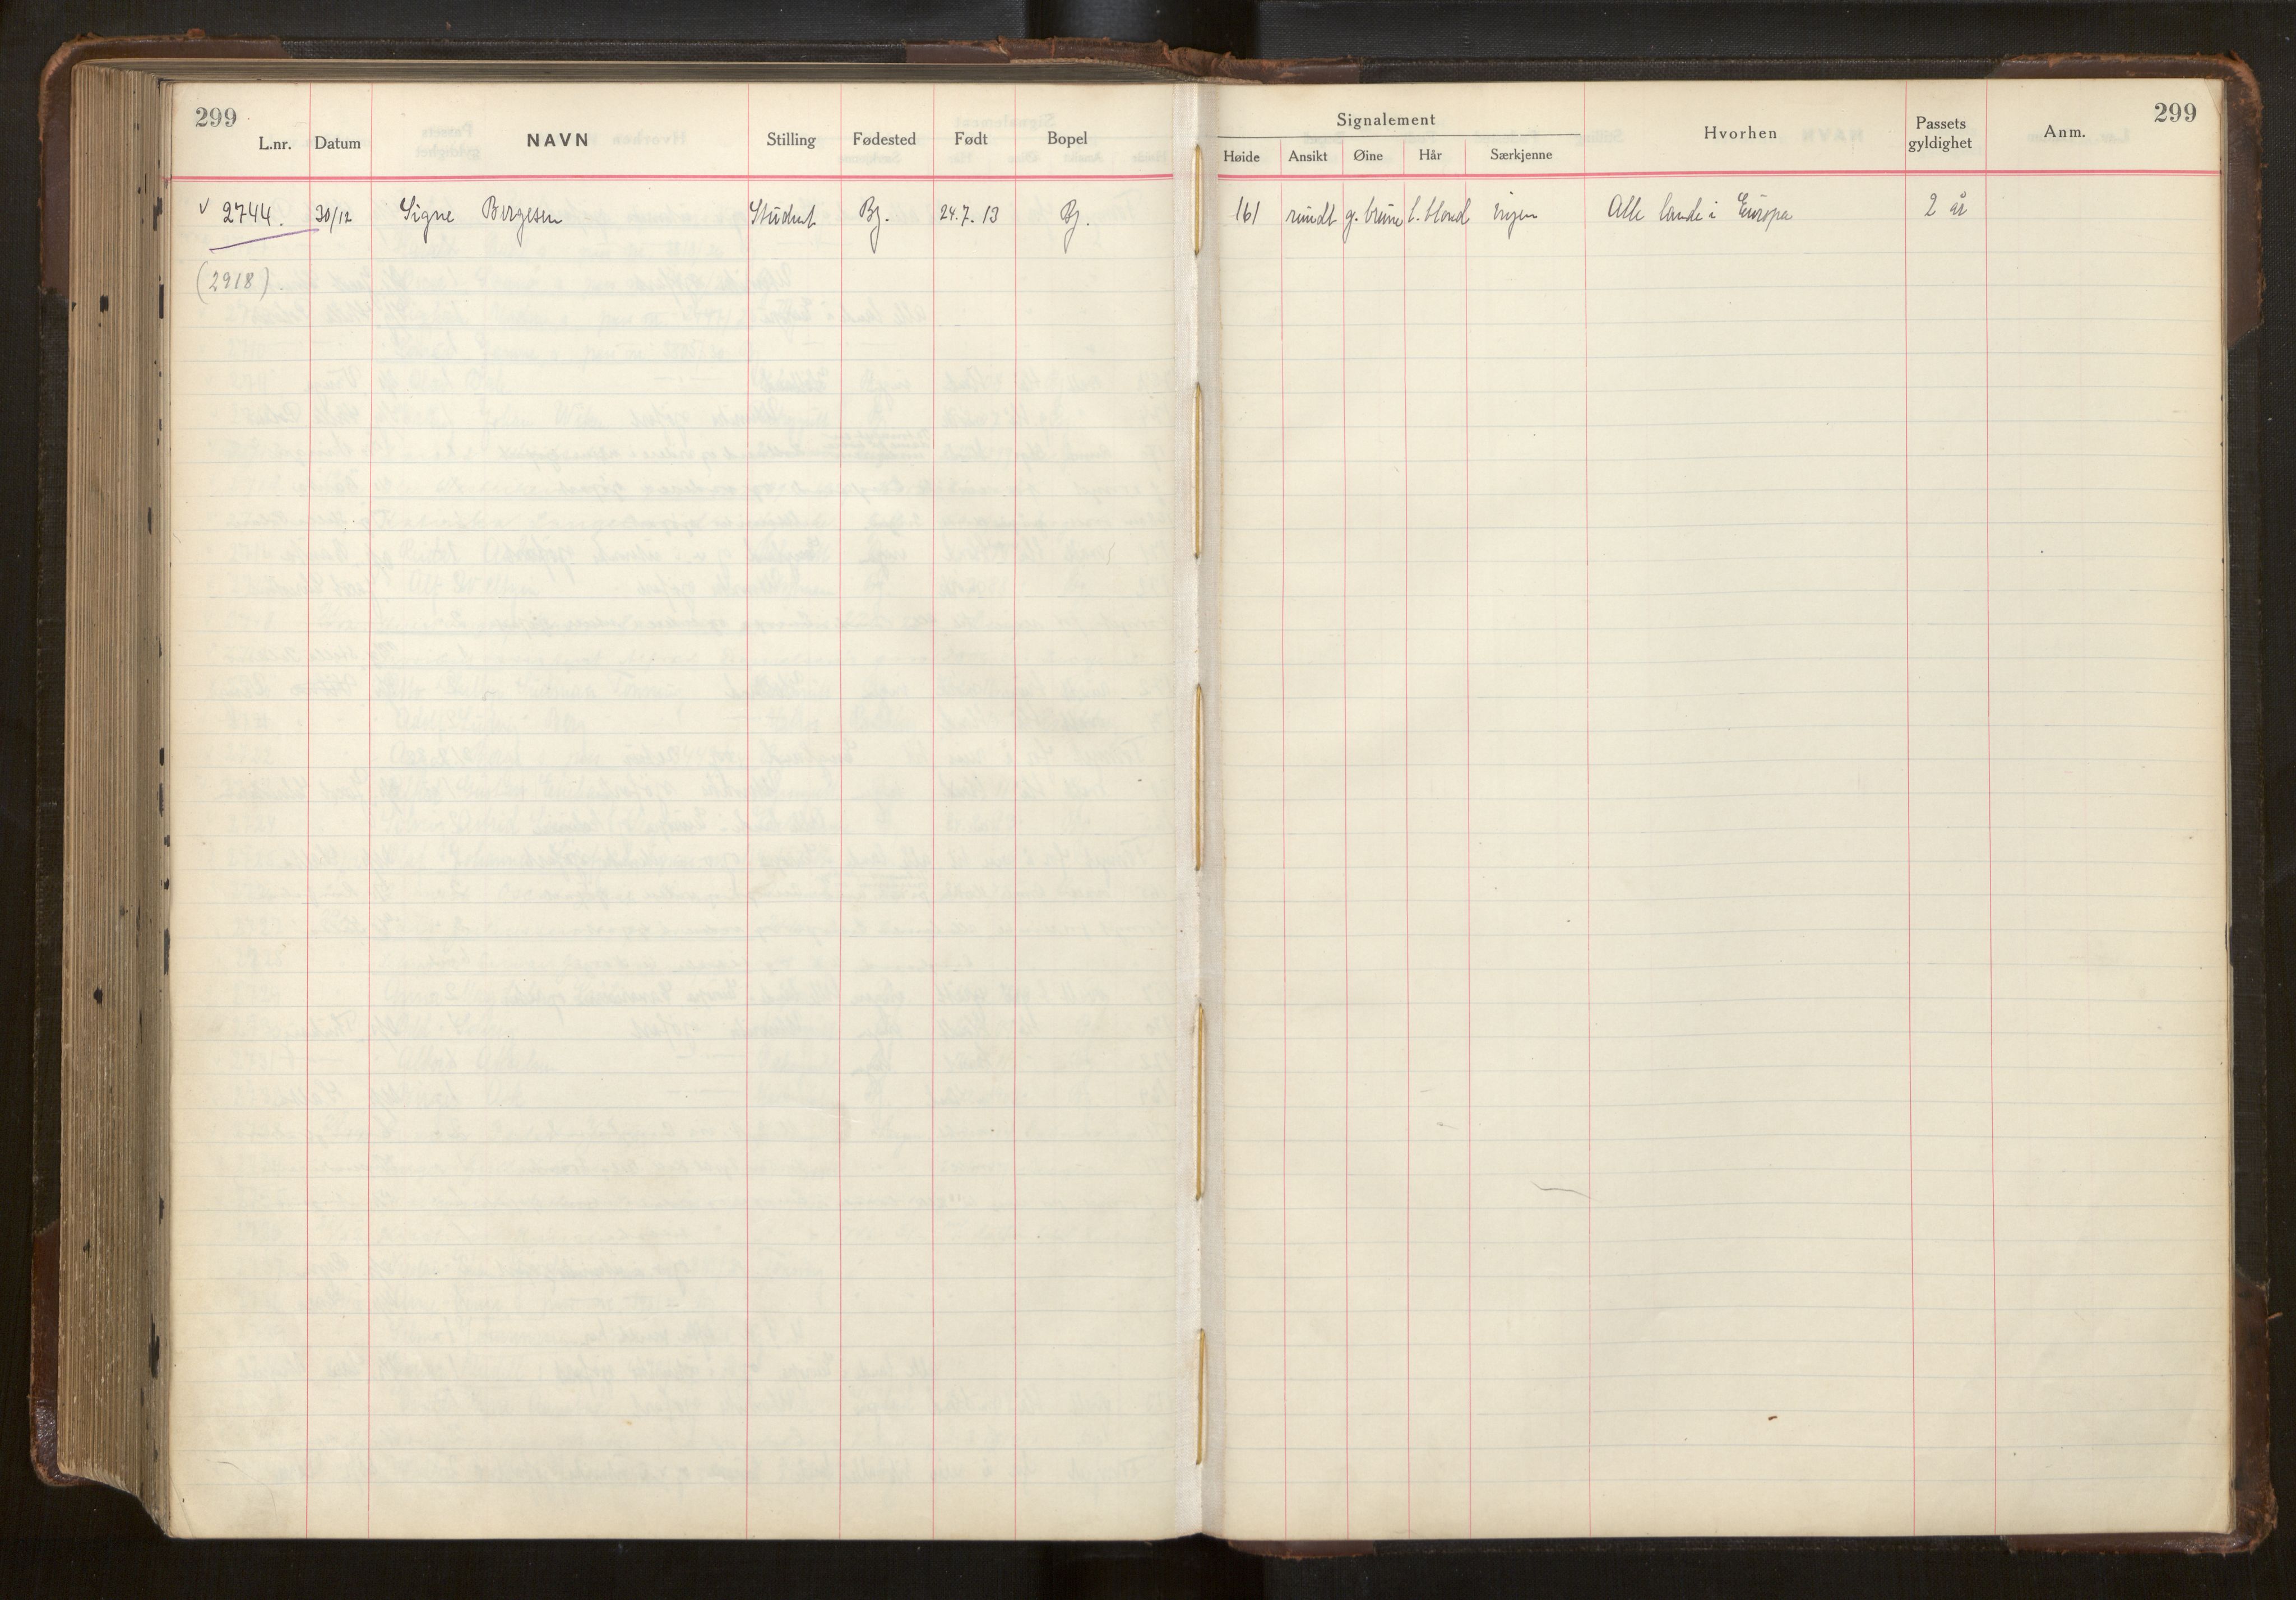 299
L.nr. Datum NAVN Stilling Fødested Født Bopel
Signalement
Høide Ansikt Øine Hår Særkjenne
Hvorhen
Passets gyldighet
Anm.
299
v 2744. 30/12 Signe Bergesen Student Bg. 24.7.13 Bg. 161 rundt g. brune l. blond ingen Alle lande i Europa 2 år
(2918).